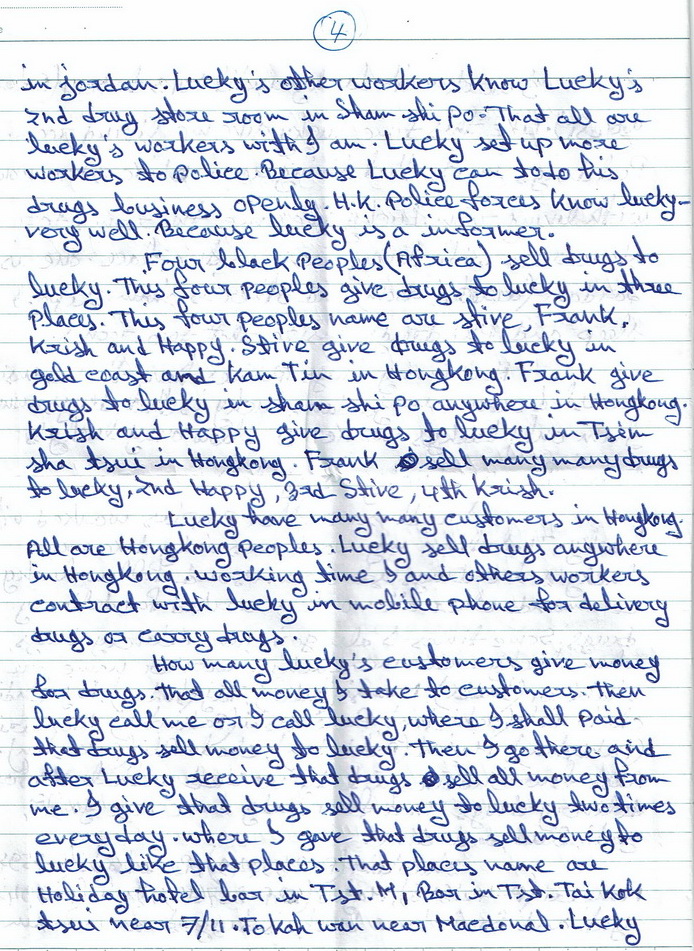 4
in jordan. Lucky's other workers know Lucky's
2nd drug store room in Sham shi po. That all are
lucky's workers with I am. Lucky set up more
workers to police. Because Lucky can to do his
drugs business openly. H.K. Police forces know lucky-
very well. Because lucky is a informer.
Four black peoples (Africa) sell drugs to
lucky. This four peoples give drugs to lucky in three
places. This four peoples name are stive, Frank,
Krish and Happy. Stive give drugs to lucky in
gold coast and Kam Tin in Hongkong. Frank give
drugs to lucky in sham shi po anywhere in Hongkong.
Krish and Happy give drugs to lucky in Tsim
sha tsui in Hongkong. Frank sell many many drugs
to lucky, 2nd Happy, 3rd Stive, 4th Krish.
Lucky have many many customers in Hongkong.
All are Hongkong peoples. Lucky sell drugs anywhere
in Hongkong. working time I and others workers
contract with lucky in mobile phone for delivery
drugs or carry drugs.
How many lucky's customers give money
for drugs. That all money I take to customers. Then
lucky call me or I call lucky, where I shall paid
that drugs sell money to lucky. Then I go there and
after Lucky receive that drugs sell all money from
me. I give that drugs sell money to lucky two times
everyday. where I gave that drugs sell money to
lucky like that places. That places name are
Holiday hotel bar in Tst. M, Bar in Tst. Tai Kok
tsui near 7/11. To kah wan near Macdonal. Lucky